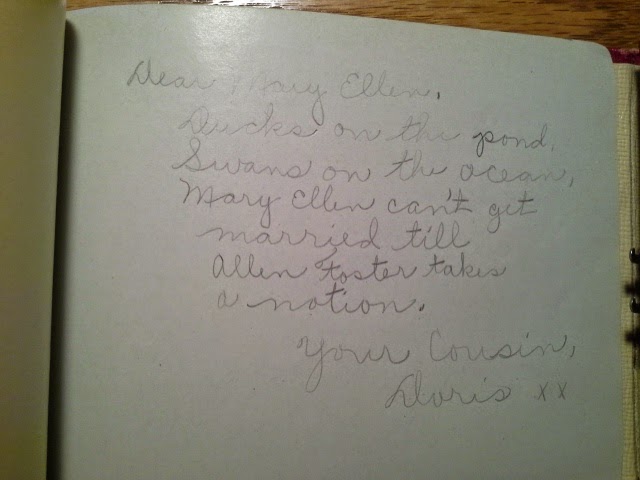 Dear Mary Ellen,
Ducks on the pond,
Swans on the ocean,
Mary Ellen can't get
married till
Allen Foster takes
a notion.
Your Cousin,
Doris xx